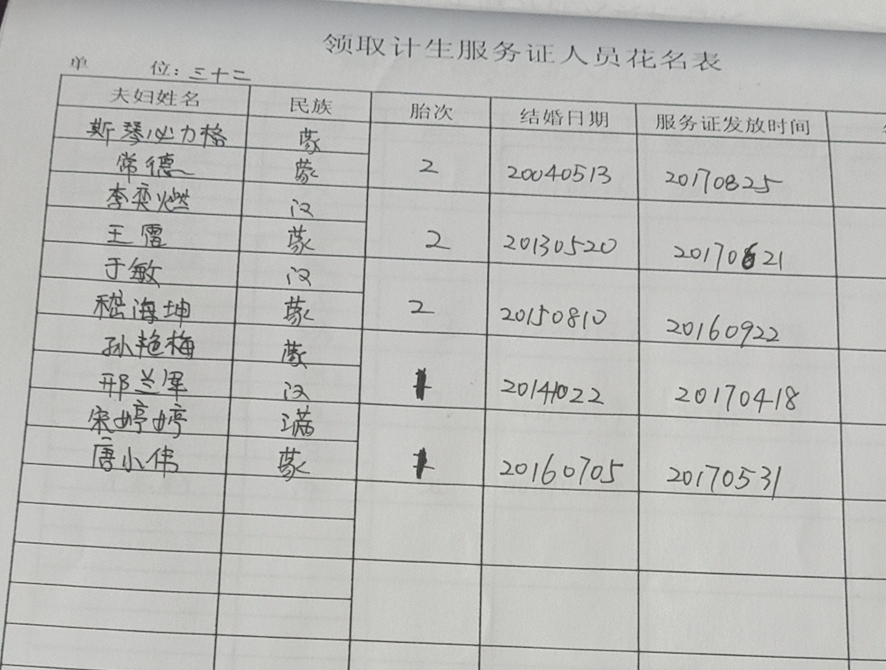 领取计生服务证人员花名表
单 位：三十二
夫妇姓名 民族 胎次 结婚日期 服务证发放时间
斯琴必力格 蒙
常德 蒙 2 20040513 20170825
李奕燃 汉
王雷 蒙 2 20130520 20170621
于敏 汉
嵇海坤 蒙 2 20150810 20160922
孙艳梅 蒙
邢兰军 汉 1 20141022 20170418
宋婷婷 满
唐小伟 蒙 1 20160705 20170531